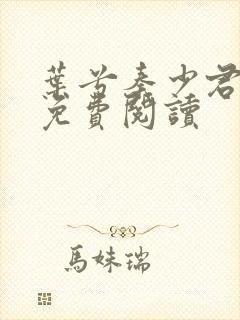 葉兮秦少君
免費閱讀
馬妹瑞